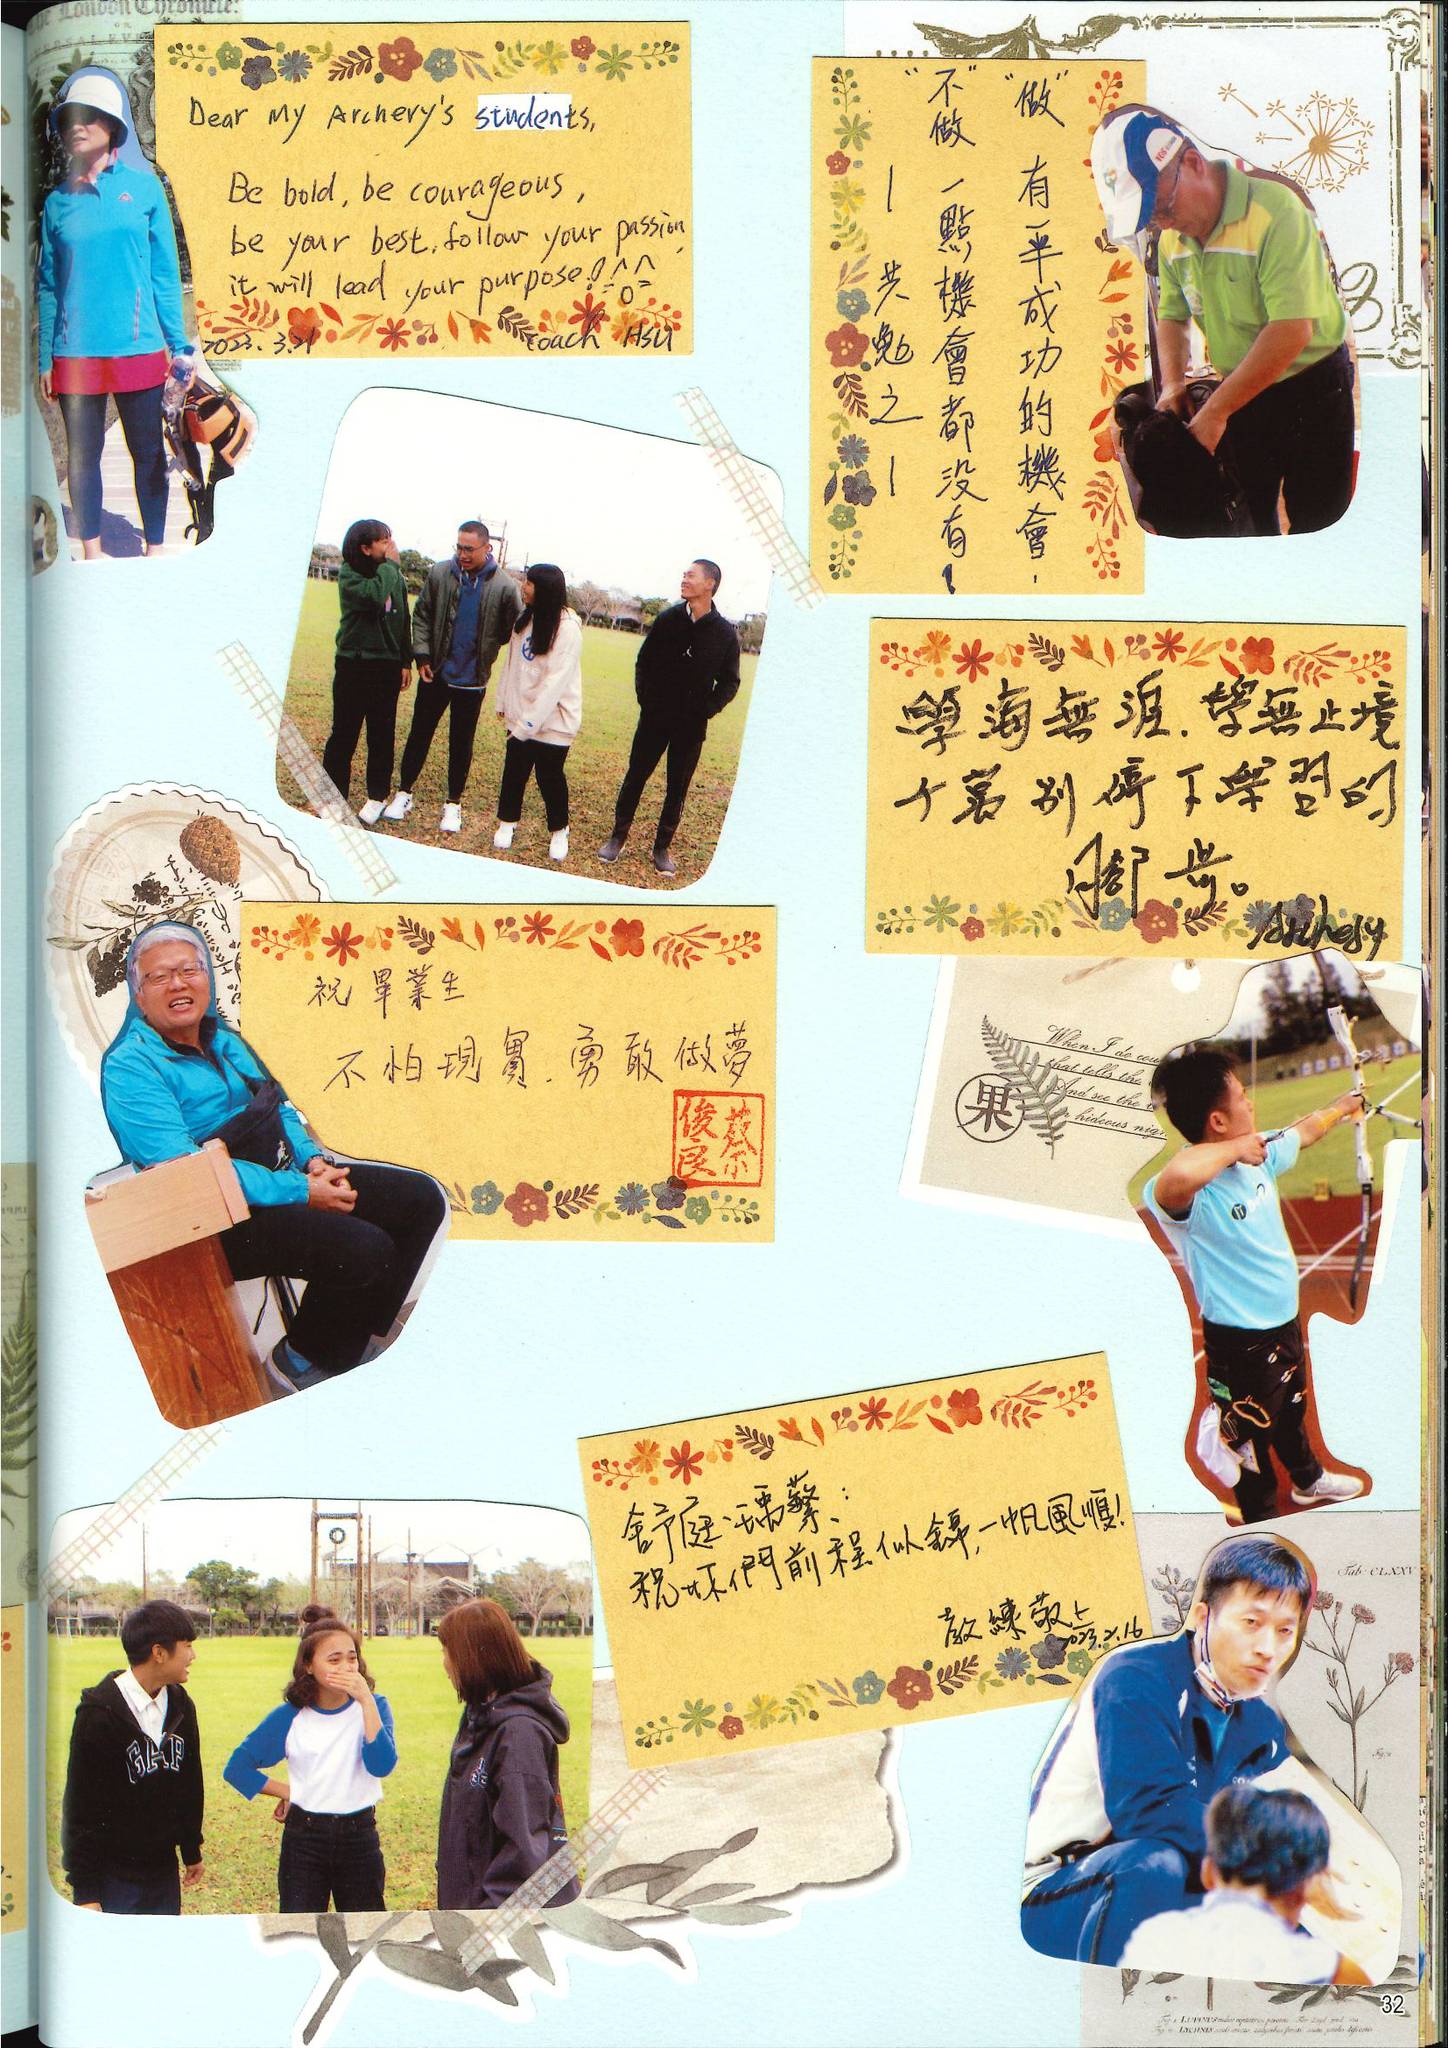 The London Chronicle:
Dear My Archery's students,
Be bold, be courageous,
be your best, follow your passion,
it will lead your purpose!
2023.3.21 Coach HSU
"做"有一半成功的機會.
"不做"一點機會都沒有!
—共勉之—
學海無涯.學無止境
千萬別停下學習的
腳步。
Archery
祝畢業生
不怕現實.勇敢做夢
蔡俊良
When I do cou
that tells the
And see the
hideous nig
果
舒庭、瑀蘩:
祝妳們前程似錦,一帆風順!
教練敬上
2023.2.16
GAP
Tab. CLXXV
32